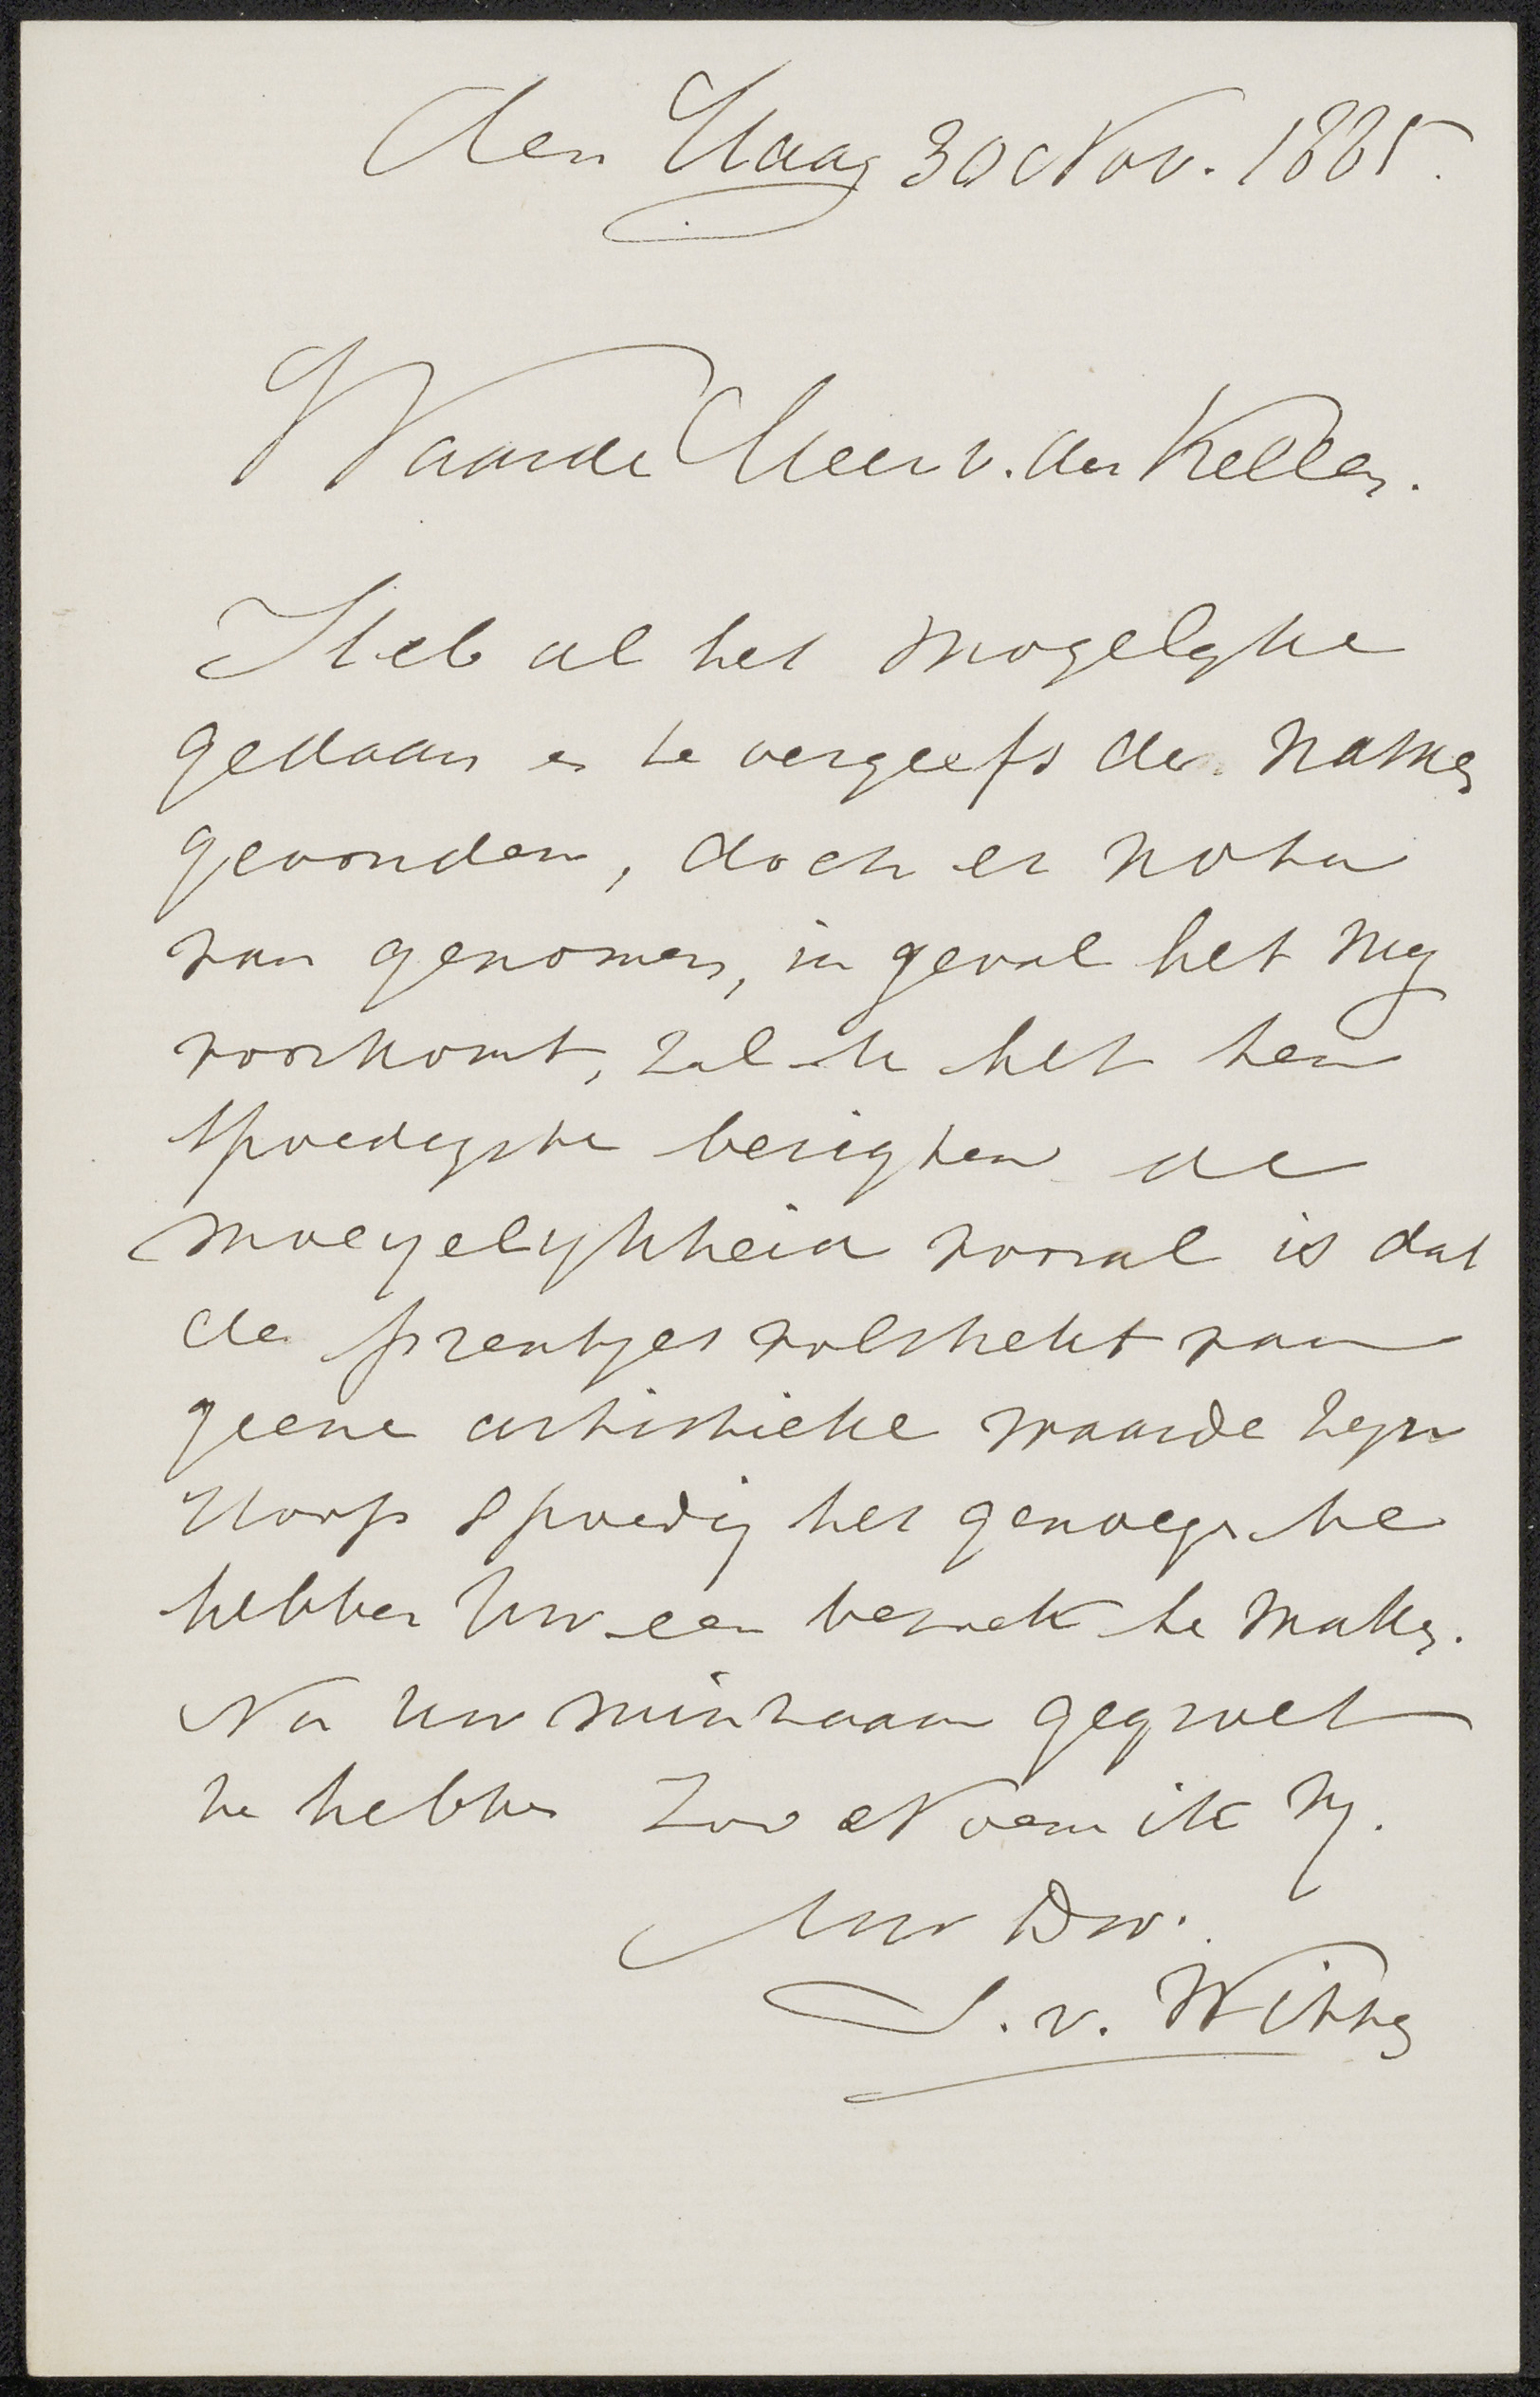 den Haag 30 Nov. 1885.
Waarde Heer v. der Kellen.
Heb al het mogelyke
gedaan en te vergeefs de namen
gevonden, doch er nota
van genomen, in geval het my
voorkomt, zal ik het ten
spoedigste berigten de
moeyelykheid vooral is dat
de prentjes volstrekt van
geene artistieke waarde zyn
Hoop spoedig het genoegen te
hebben Uw een bezoek te maken.
Na Uw minzaam gegroet
te hebben Zoo Noem ik My.
Uw Dw.
S. v. Witten